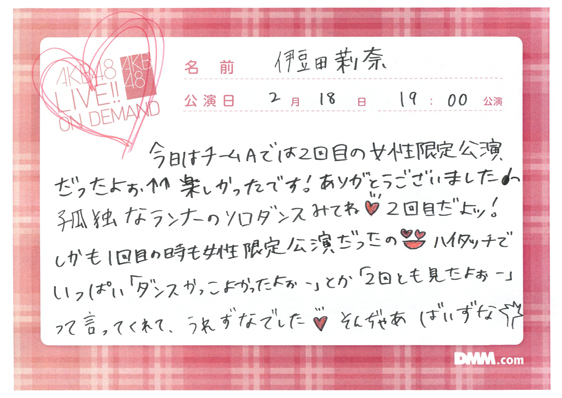 AKB48
LIVE!!
ON DEMAND
AKB
48
名前 伊豆田莉奈
公演日 2月18日 19:00公演
今日はチームAでは2回目の女性限定公演
だったよぉ↑↑ 楽しかったです!ありがとうございました♪
孤独なランナーのソロダンスみてね♥2回目だよッ!
しかも1回目の時も女性限定公演だったの ハイタッチで
いっぱい「ダンスかっこよかったよぉー」とか「2回とも見たよぉー」
って言ってくれて、うれずなでした♥ そんぢゃあ ばいずな☆
DMM.com